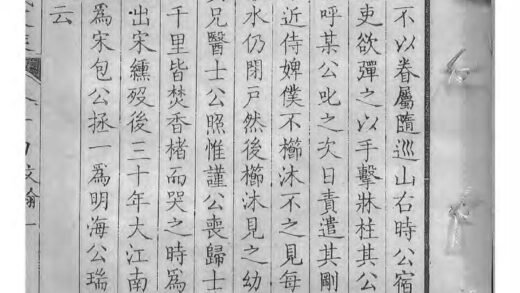 不以眷屬隨巡山右時公宿
吏欲彈之以手擊牀柱其公
呼某公叱之次日責遣其剛
近侍婢僕不櫛沐不之見每
水仍閉戸然後櫛沐見之幼
兄醫士公照惟謹公喪歸士
千里皆焚香楮而哭之時爲
出宋纁歿後三十年大江南
爲宋包公拯一爲明海公瑞
云